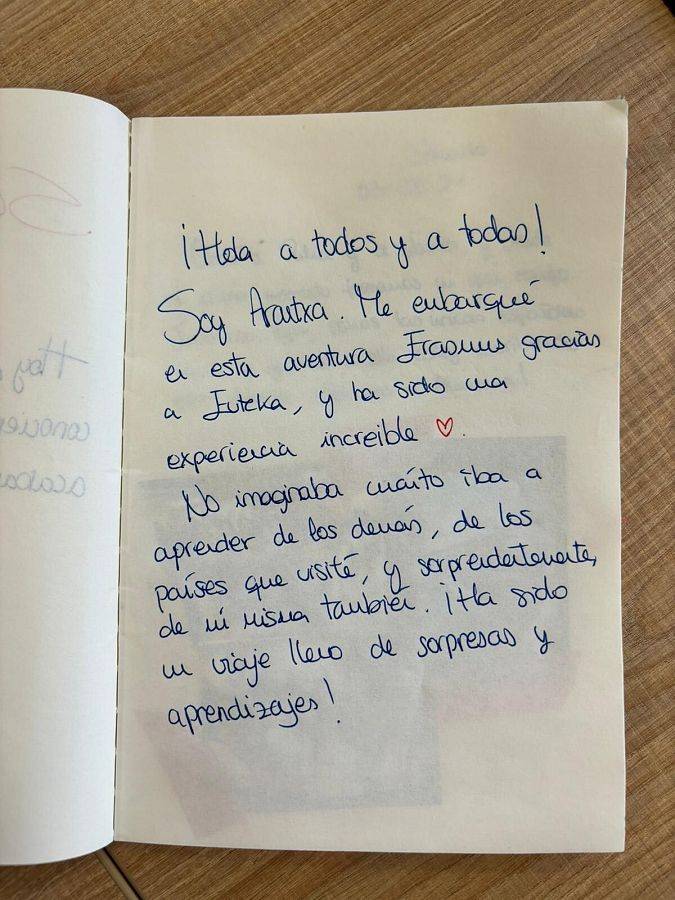 ¡Hola a todos y a todas!
Soy Arantxa. Me embarqué
en esta aventura Erasmus gracias
a Euteka, y ha sido una
experiencia increible ♡.
No imaginaba cuánto iba a
aprender de los demás, de los
países que visité, y sorprendentemente,
de mi misma también. ¡Ha sido
un viaje lleno de sorpresas y
aprendizajes!